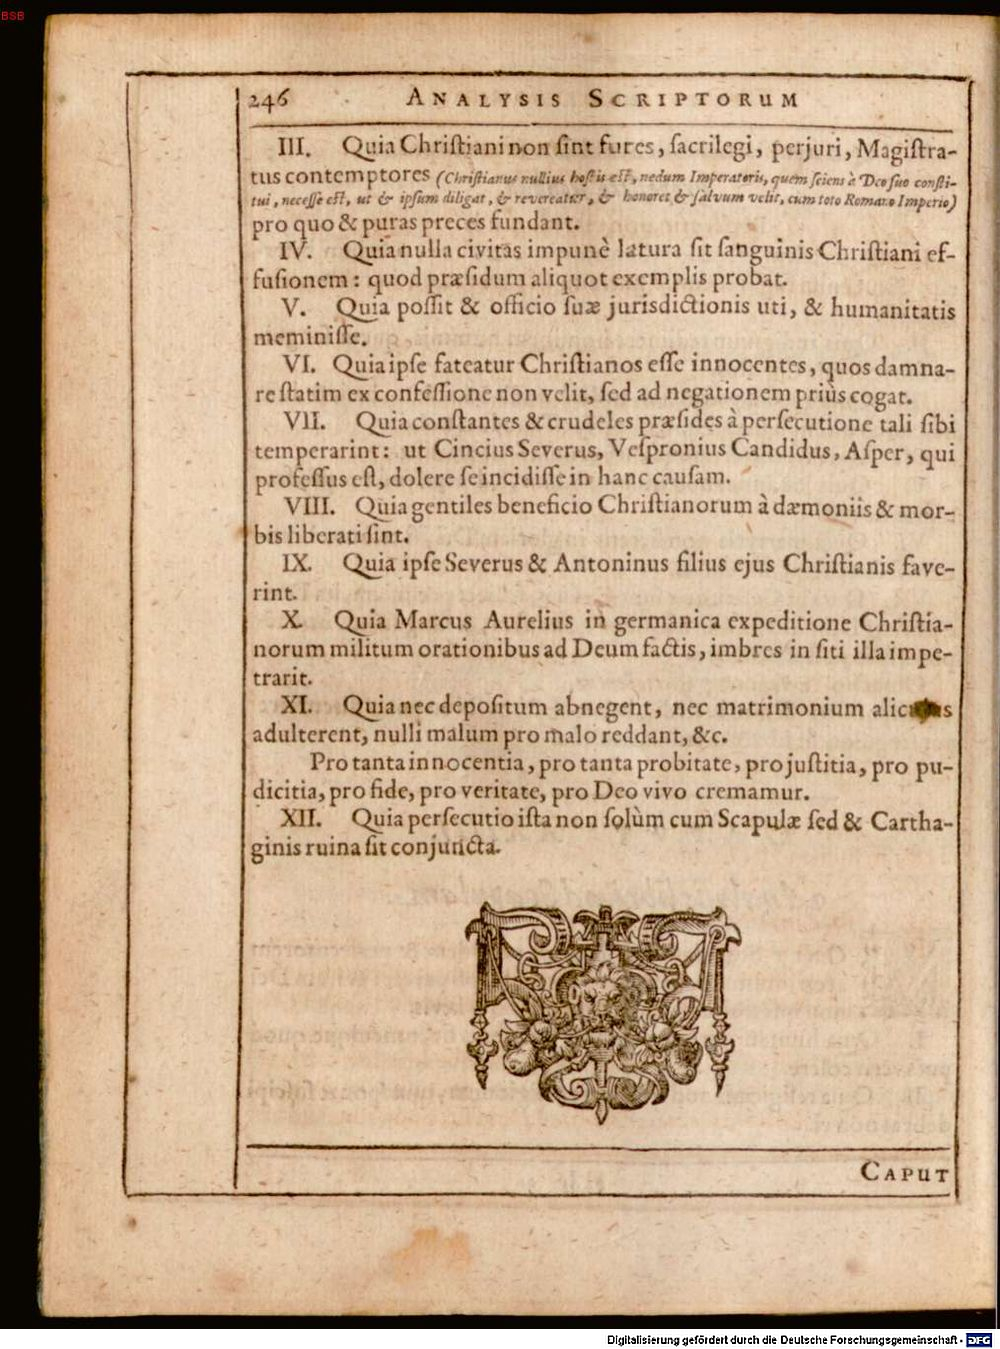 BSB
246 ANALYSIS SCRIPTORUM
III. Quia Christiani non sint fures, sacrilegi, perjuri, Magistra-
tus contemptores (Christianus nullius hostis est, nedum Imperatoris, quem sciens à Deo suo consti-
tui, necesse est, ut & ipsum diligat, & revereatur, & honoret & salvum velit, cum toto Romano Imperio)
pro quo & puras preces fundant.
IV. Quia nulla civitas impunè latura sit sanguinis Christiani ef-
fusionem: quod præsidum aliquot exemplis probat.
V. Quia possit & officio suæ jurisdictionis uti, & humanitatis
meminisse.
VI. Quia ipse fateatur Christianos esse innocentes, quos damna-
re statim ex confessione non velit, sed ad negationem priùs cogat.
VII. Quia constantes & crudeles præsides à persecutione tali sibi
temperarint: ut Cincius Severus, Vespronius Candidus, Asper, qui
professus est, dolere se incidisse in hanc causam.
VIII. Quia gentiles beneficio Christianorum à dæmoniis & mor-
bis liberati sint.
IX. Quia ipse Severus & Antoninus filius ejus Christianis fave-
rint.
X. Quia Marcus Aurelius in germanica expeditione Christia-
norum militum orationibus ad Deum factis, imbres in siti illa impe-
trarit.
XI. Quia nec depositum abnegent, nec matrimonium
adulterent, nulli malum pro malo reddant, &c.
Pro tanta innocentia, pro tanta probitate, pro justitia, pro pu-
dicitia, pro fide, pro veritate, pro Deo vivo cremamur.
XII. Quia persecutio ista non solùm cum Scapulæ sed & Cartha-
ginis ruina sit conjuncta.
CAPUT
Digitalisierung gefördert durch die Deutsche Forschungsgemeinschaft - DFG